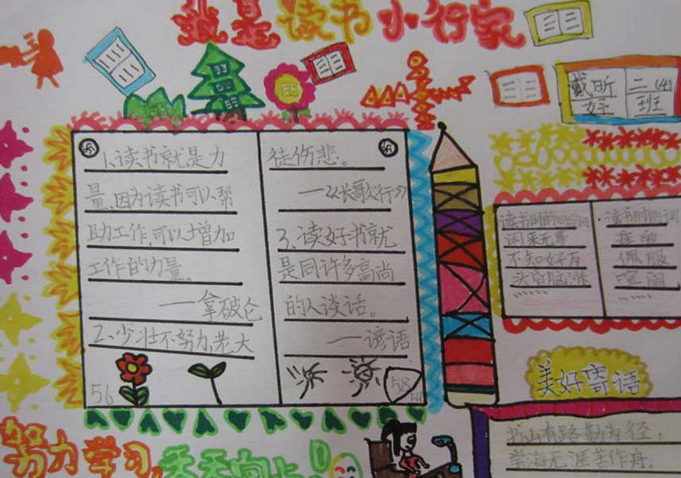 我是读书小行家
戴昕妤
二(4)班
1.读书就是力
量,因为读书可以帮
助工作,可以增加
工作的力量。
——拿破仑
2、少壮不努力,老大
56
徒伤悲。
——《长歌行》
3、读好书就
是同许多高尚
的人谈话。
——谚语
58
读书时的
闲来无事
不知好歹
头昏脑涨
佩服
美好寄语
书山有路勤为径,
学海无涯苦作舟。
努力学习,天天向上!